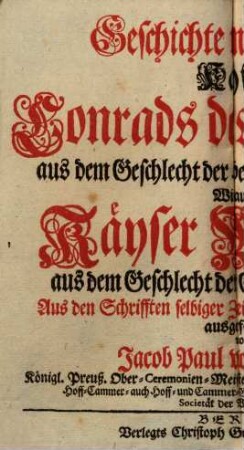 Geschichte
Conrads
aus dem Geschlecht der
Käyser
aus dem Geschlecht
Aus den Schrifften selbiger
ausge
Jacob Paul
Königl. Preuß. Ober-Ceremonien-Meiste
Hoff-Cammer- auch Hoff- und Cammer-
Societät der
BER
Verlegts Christoph G